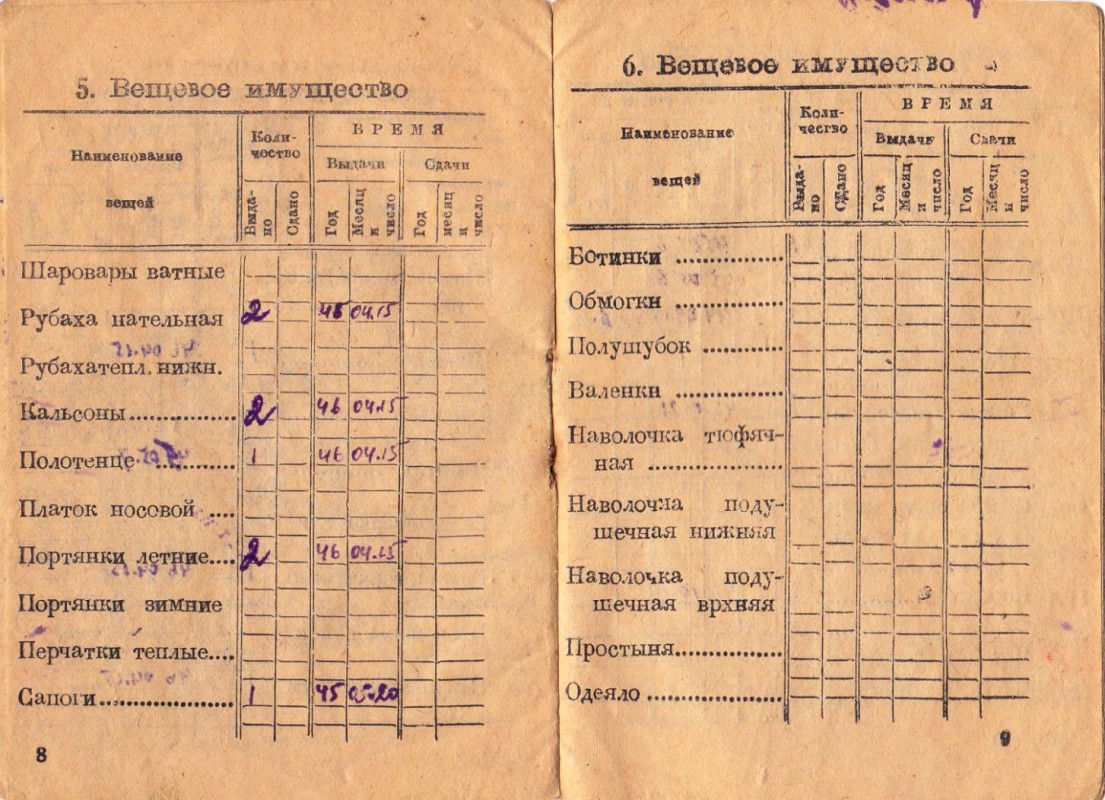 5. Вещевое имущество
Наименование вещей
Коли-
чество
ВРЕМЯ
Выдачи
Сдачи
Выда-
но
Сдано
Год
Месяц
и
число
Год
месяц
и
число
Шаровары ватные
Рубаха нательная 2 46 04.15
Рубахатепл. нижн.
Кальсоны.............. 2 46 04.15
Полотенце ............ 1 46 04.15
Платок носовой ....
Портянки летние.... 2 46 04.15
Портянки зимние
Перчатки теплые....
Сапоги.................. 1 45 05.20
8
6. Вещевое имущество
Наименование
вещей
Коли-
чество
ВРЕМЯ
Выдачи
Сдачи
Выда-
но
Сдано
Год
Месяц
и
число
Год
Месяц
и
число
Ботинки ..............
Обмотки ..............
Полушубок ..........
Валенки ..............
Наволочка тюфяч-
ная .................
Наволочка поду-
шечная нижняя
Наволочка поду-
шечная врхняя
Простыня..............
Одеяло .................
9